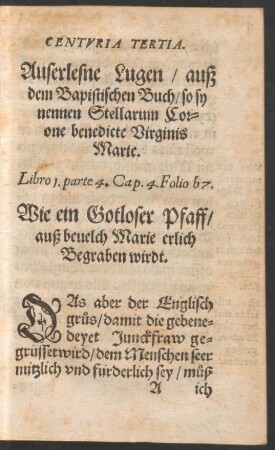 CENTVRIA TERTIA.
Auserlesne Lugen / auß
dem Bapistischen Buch / so sy
nennen Stellarum Cor⸗
one benedicte Virginis
Marie.
Libro 1. parte 4. Cap. 4. Folio b7.
Wie ein Gotloser Pfaff /
auß beuelch Marie erlich
Begraben wirdt.
DAs aber der Englisch
grüs / damit die gebene⸗
deyet Junckfraw ge⸗
grüsset wird / dem Menschen seer
nützlich vnd fürderlich sey / müß
A ich